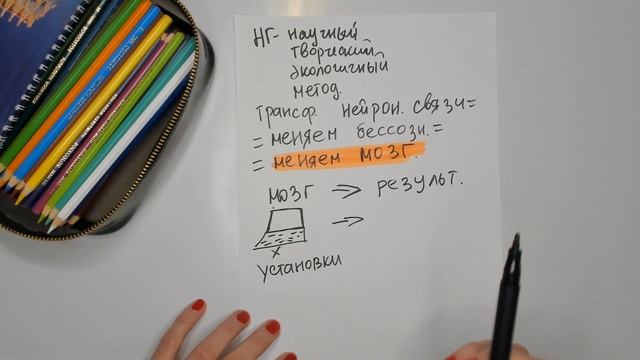 НГ- научный
творческий
экологичный
метод.
Трансф. нейрон. связи =
= меняем бессозн. =
= меняем мозг.
мозг → результ.
→
установки